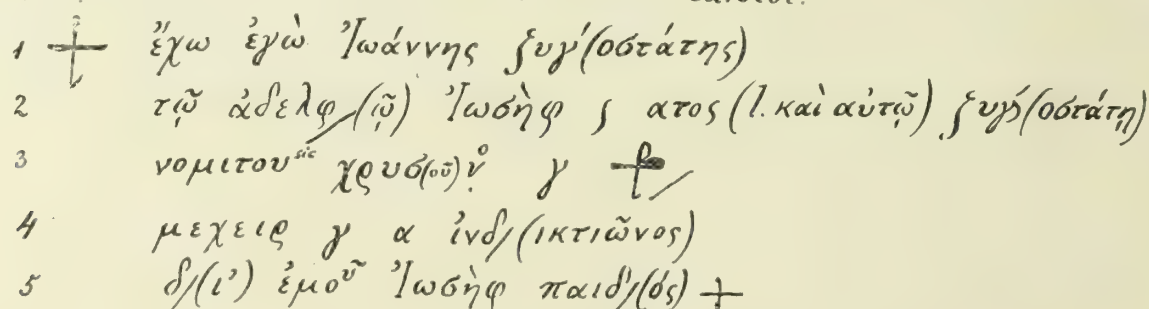 1 ☧ ἔχω ἐγὼ Ἰωάννης ζυγ́(οστάτης)
2 τῷ ἀδελφ/(ῷ) Ἰωσὴφ ϛ ατος (l. καὶ αὐτῷ) ζυγ́(οστάτῃ)
3 νομιτου sic χρυσ(οῦ) ν̣ο γ ⳨/
4 μεχειρ γ α ἰνδ/(ικτιῶνος)
5 δ/(ι’) ἐμοῦ Ἰωσὴφ παιδ/(ός) +